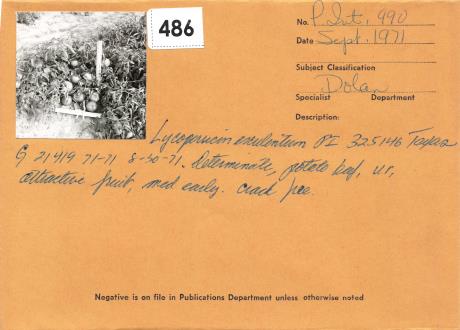 486
No. P. Int. 990
Date Sept. 1971
Subject Classification
Dolan
Specialist Department
Description:
Lycopersicon esculentum PI 325146 Tapas
G 21419 71-71 8-30-71. Determinate, potato leaf, ur,
attractive fruit, med early. crack free.
Negative is on file in Publications Department unless otherwise noted